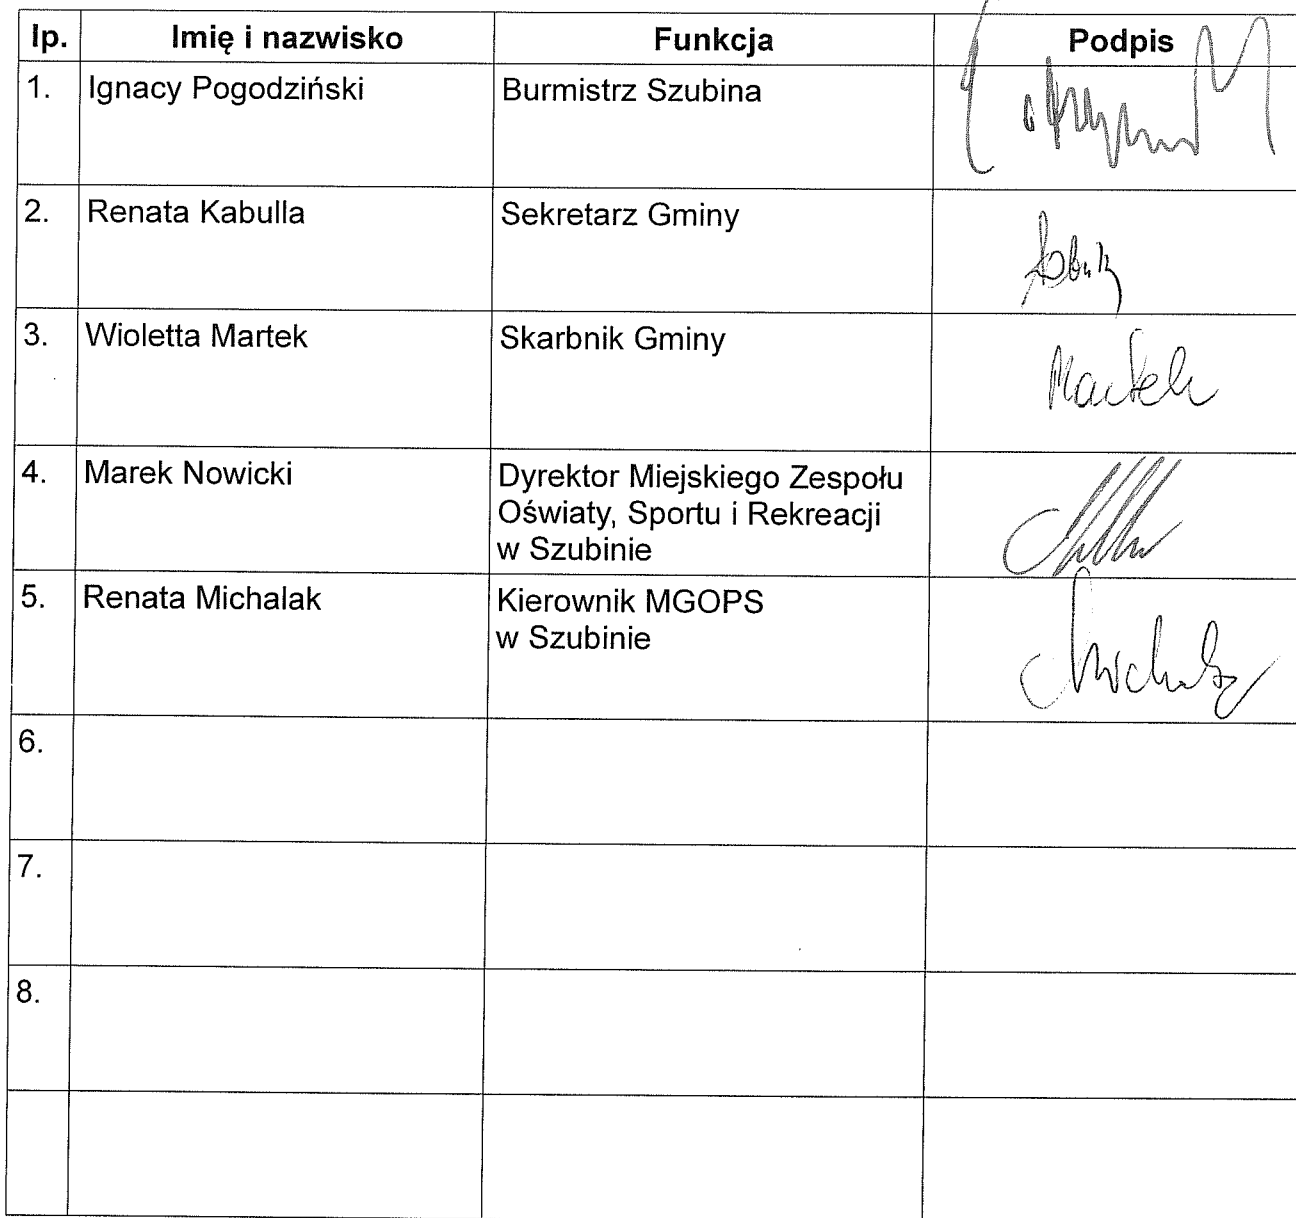 lp. Imię i nazwisko Funkcja Podpis
1. Ignacy Pogodziński Burmistrz Szubina
2. Renata Kabulla Sekretarz Gminy
3. Wioletta Martek Skarbnik Gminy Martek
4. Marek Nowicki Dyrektor Miejskiego Zespołu
Oświaty, Sportu i Rekreacji
w Szubinie
5. Renata Michalak Kierownik MGOPS
w Szubinie
6.
7.
8.